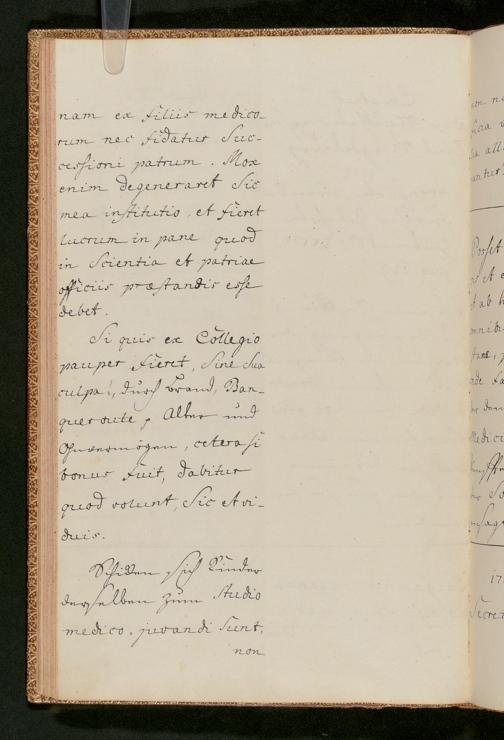 nam ex filiis medico-
rum nec fidatur Suc-
cessioni patrum. Mox
enim degeneraret Sic
mea institutio, et fieret
lucrum in pane quod
in Scientia et patriae
officiis præstandis esse
debet.
Si quis ex Collegio
pauper fieret, Sine Sua
culpa, durch brand, Ban-
queroute, Alter und
Unvermögen, cetera si
bonus fuit, dabitur
quod volunt, Sic et vi-
duis.
Schiken sich Kinder
derselben zum Studio
medico, juvandi Sunt,
non